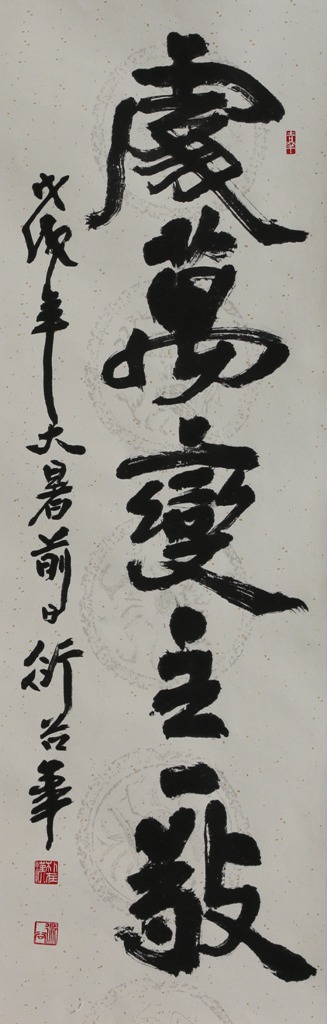 處萬變主一敬
戊戌年大暑前日衍谷